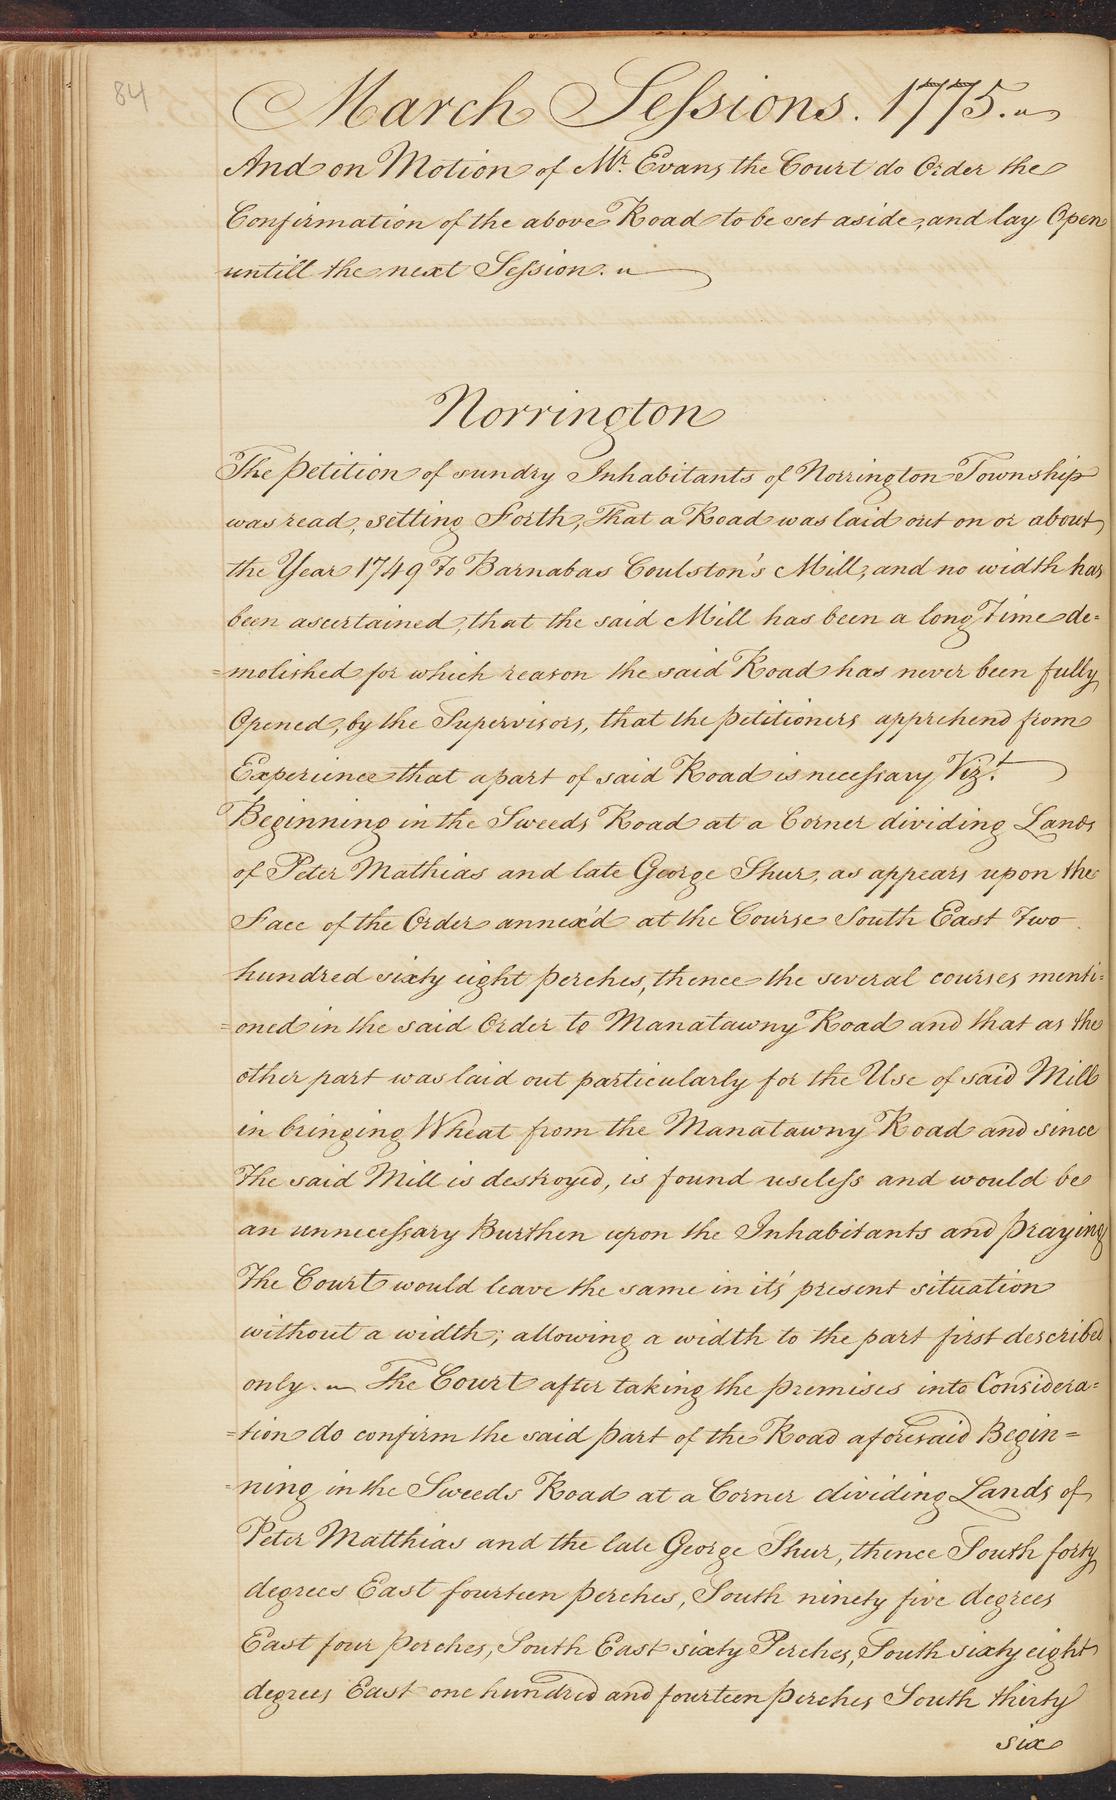 84
March Sessions. 1775.
And on Motion of Mr. Evans the Court do Order the
Confirmation of the above Road to be set aside, and lay Open
untill the next Session.
Norrington
The Petition of sundry Inhabitants of Norrington Township
was read, setting Forth, That a Road was laid out on or about
the Year 1749 to Barnabas Coulston's Mill, and no width has
been ascertained, that the said Mill has been a long Time de=
=molished for which reason the said Road has never been fully
Opened, by the Supervisors, that the petitioners apprehend from
Experience that a part of said Road is necessary Vizt.
Beginning in the Sweeds Road at a Corner dividing Lands
of Peter Mathias and late George Shur, as appears upon the
Face of the Order annex'd at the Course South East Two
hundred sixty eight perches, thence the several courses menti=
=oned in the said Order to Manatawny Road and that as the
other part was laid out particularly for the Use of said Mill
in bringing Wheat from the Manatawny Road and since
the said Mill is destroyed, is found useless and would be
an unnecessary Burthen upon the Inhabitants and praying
The Court would leave the same in it's present situation
without a width; allowing a width to the part first described
only. The Court after taking the premises into Considera=
=tion do confirm the said part of the Road aforesaid Begin=
=ning in the Sweeds Road at a Corner dividing Lands of
Peter Matthias and the late George Shur, thence South forty
degrees East fourteen perches, South ninety five degrees
East four perches, South East sixty Perches, South sixty eight
degrees East one hundred and fourteen perches South thirty
six